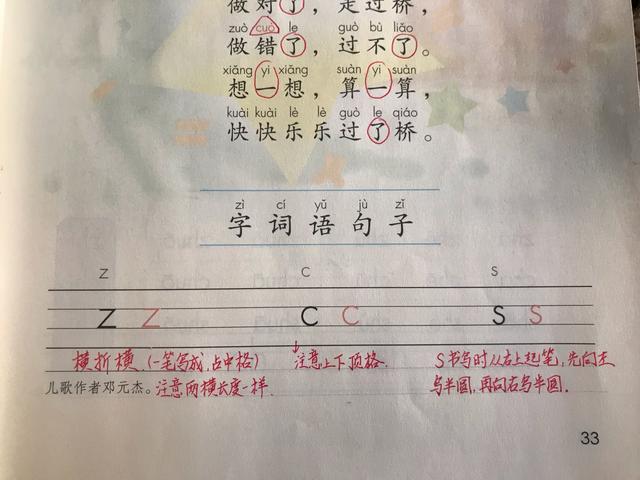 做对了，走过桥，
zuò cuò le guò bù liǎo
做错了，过不了。
xiǎng yi xiǎng suàn yi suàn
想一想，算一算，
kuài kuài lè lè guò le qiáo
快快乐乐过了桥。
zì cí yǔ jù zǐ
字词语句子
z c s
z z c c s s
横折横（一笔写成，占中格） 注意上下顶格. S书写时从右上起笔，先向左
儿歌作者邓元杰。注意两横长度一样. 写半圆，再向右写半圆.
33